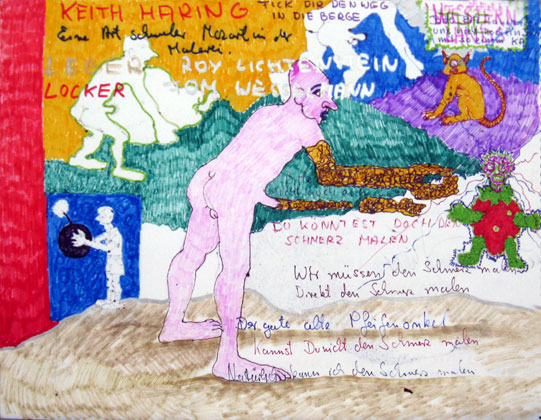 KEITH HARING
TICK DIR DEN WEG
IN DIE BERGE
Eine Art schwuler Mozart in der
Malerei.
WESTERN
LEGER ROY LICHTENSTEIN
LOCKER TOM WESSELMANN
DU KONNTEST DOCH DEN
SCHMERZ MALEN
Wir müssen den Schmerz malen
Direkt den Schmerz malen
Der gute alte Pfeifenonkel
Kannst Du nicht den Schmerz malen
Natürlich kann ich den Schmerz malen